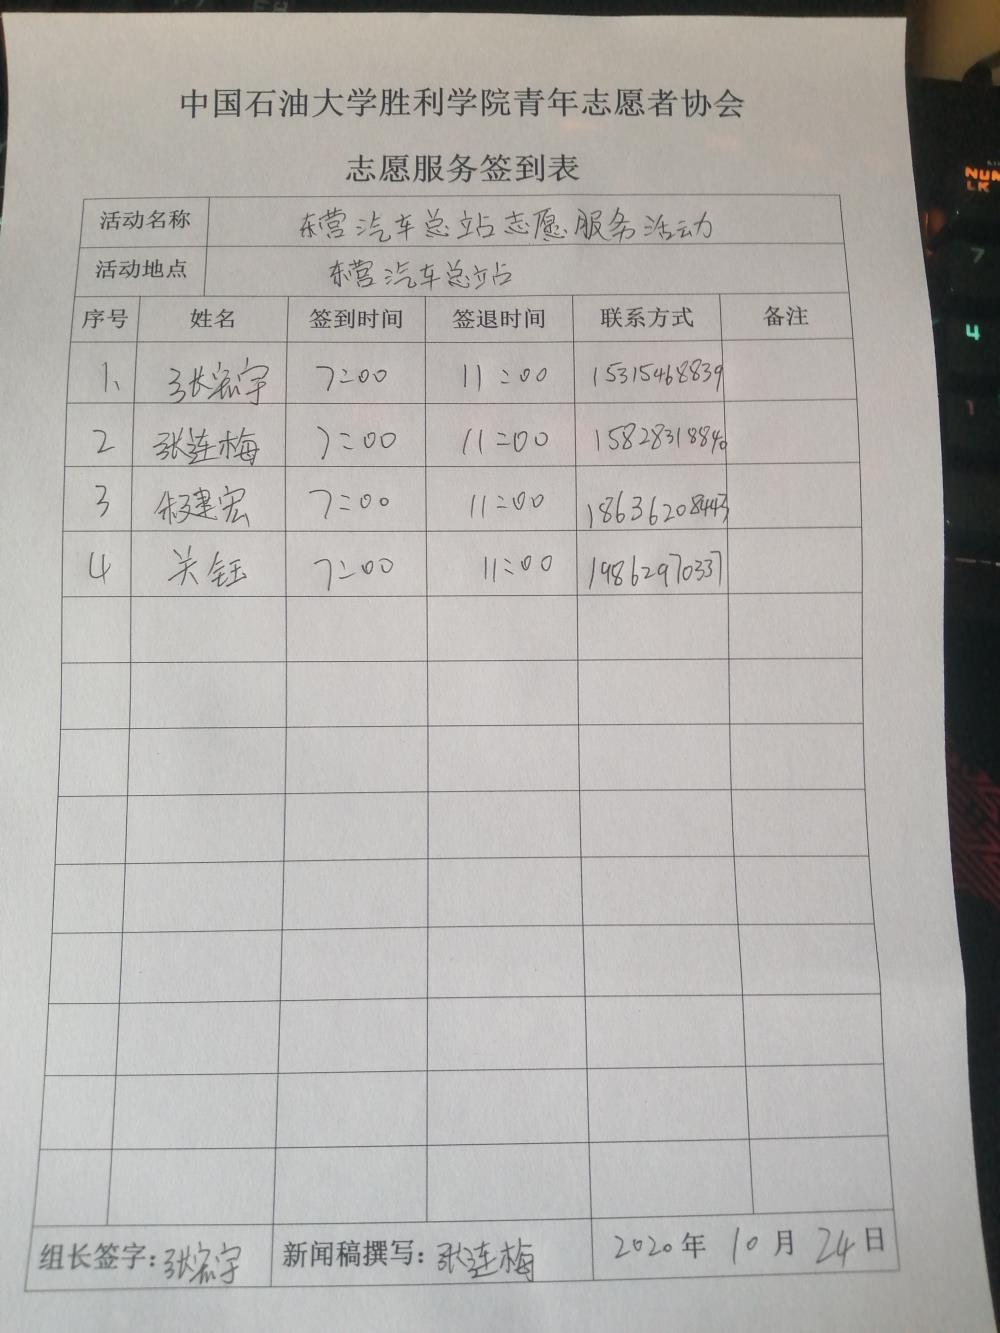 中国石油大学胜利学院青年志愿者协会
志愿服务签到表
活动名称 东营汽车总站志愿服务活动
活动地点 东营汽车总站
序号 姓名 签到时间 签退时间 联系方式 备注
1、 张宸宇 7:00 11:00 15315468839
2 张莲梅 7:00 11:00 15828318840
3 7:00 11:00 18636208443
4 关钰 7:00 11:00 19862970337
组长签字:张宸宇 新闻稿撰写:张莲梅 2020年10月24日
NUM
LK
7
4
1